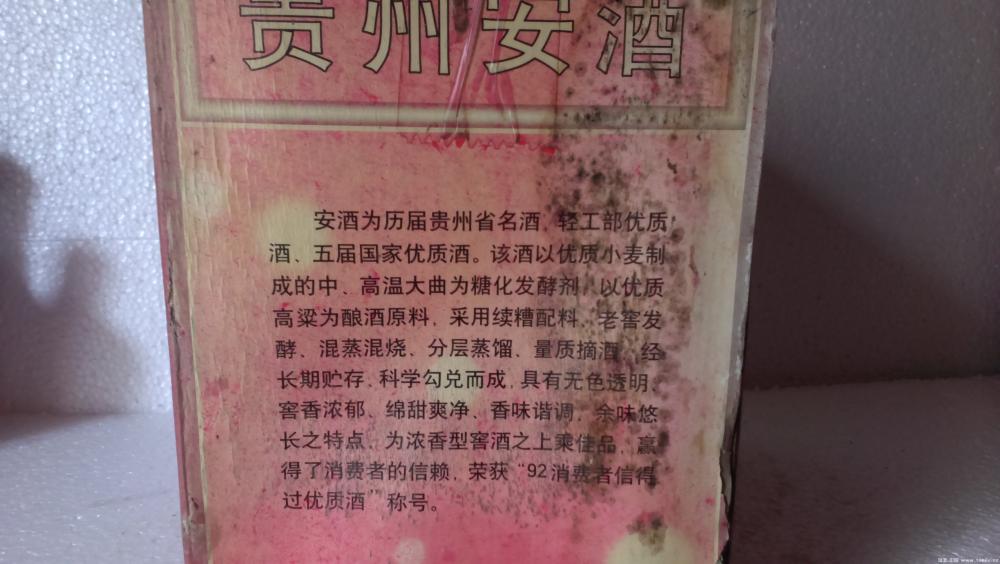 贵州安酒
安酒为历届贵州省名酒,轻工部优质
酒、五届国家优质酒。该酒以优质小麦制
成的中、高温大曲为糖化发酵剂,以优质
高粱为酿酒原料,采用续糟配料、老窖发
酵、混蒸混烧、分层蒸馏、量质摘酒,经
长期贮存,科学勾兑而成,具有无色透明、
窖香浓郁、绵甜爽净、香味谐调、余味悠
长之特点,为浓香型窖酒之上乘佳品,赢
得了消费者的信赖,荣获“92消费者信得
过优质酒”称号。